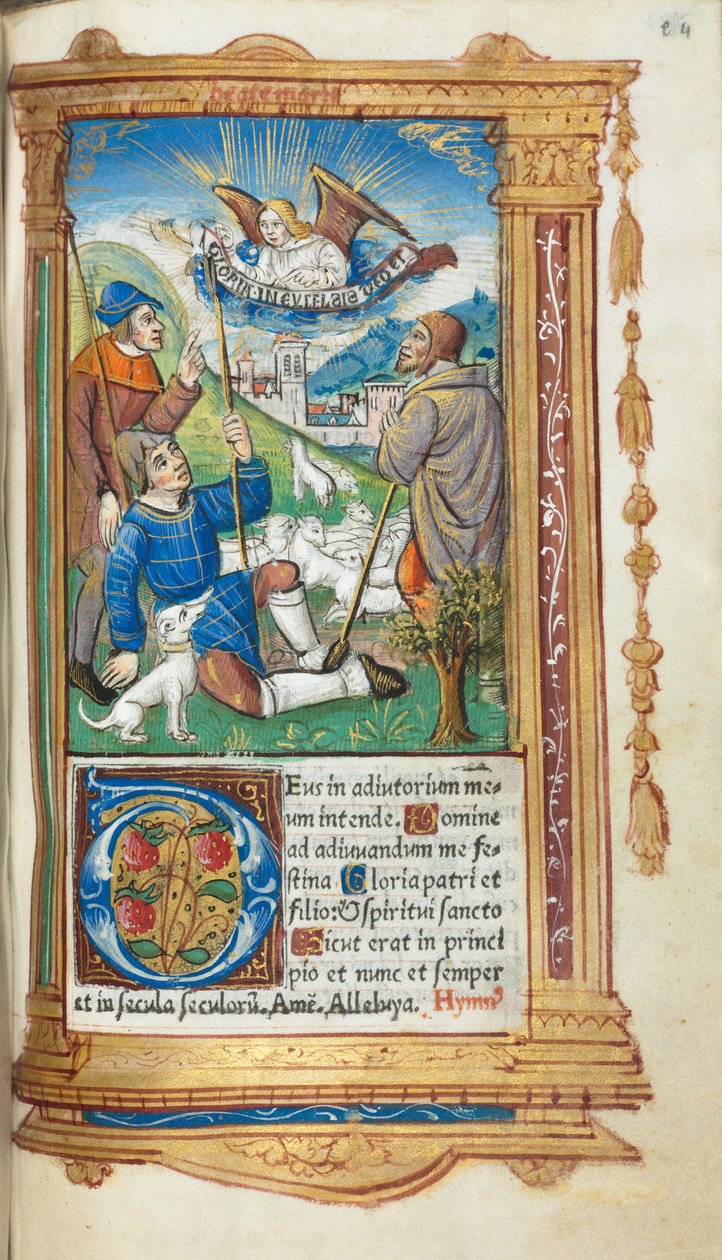 e 4
beate marie
GLORIA·IN EXCELSIS DEO ET
Eus in adiutorium me⸗
um intende. Domine
ad adiuuandum me fe⸗
ſtina Gloria patri et
filio: & ſpiritui ſancto
Sicut erat in princi
pio et nunc et ſemper
et in ſecula ſeculorū. Amē. Alleluya. Hymnꝰ